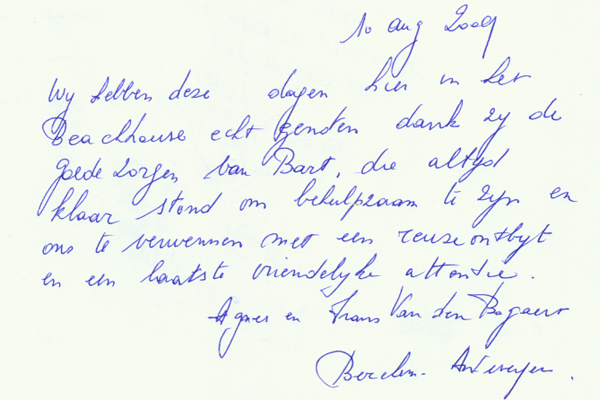 10 aug 2009
Wij hebben deze dagen hier in het
Beachhouse echt genoten dank zij de
goede zorgen van Bart, die altijd
klaar stond om behulpzaam te zijn en
ons te verwennen met een reuzeontbijt
en een laatste vriendelijke attentie.
Agnes en Frans Van den Bogaert
Berchem - Antwerpen.